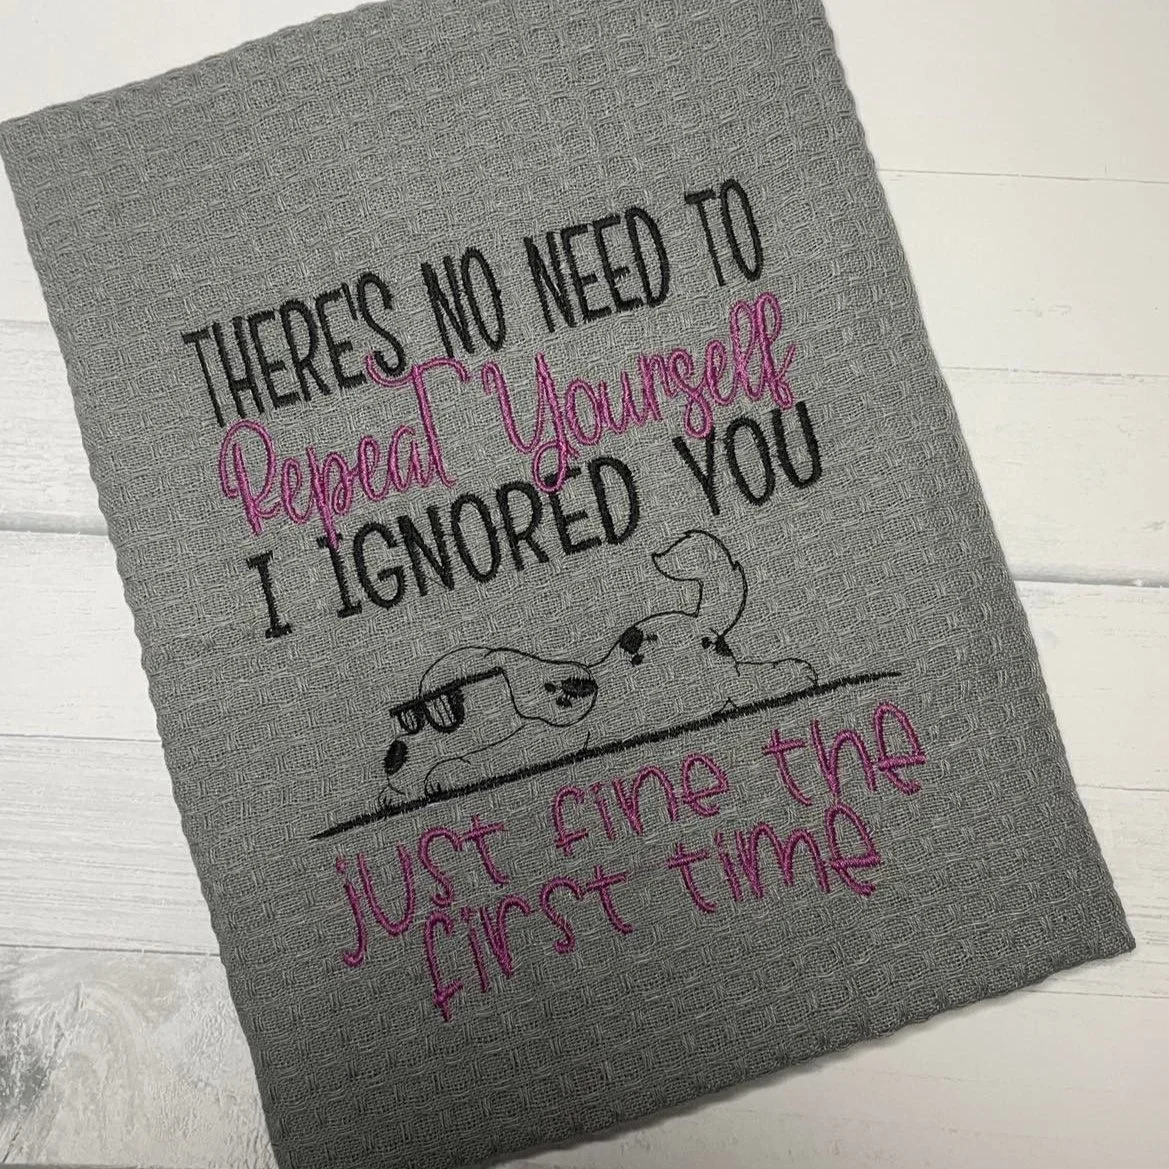 THERE'S NO NEED TO
Repeat Yourself
I IGNORED YOU
just fine the
first time